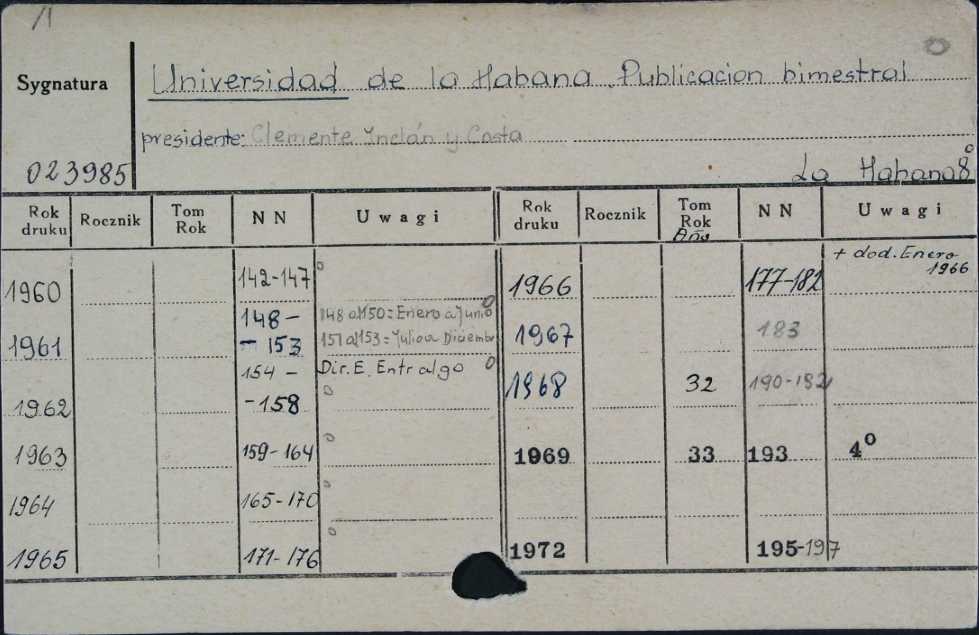 /1
Sygnatura
Universidad de la Habana. Publicacion bimestral
presidente: Clemente Inclán y Costa
023985
La Habana 8°
Rok druku Rocznik Tom Rok NN Uwagi Rok druku Rocznik Tom Rok Año NN Uwagi
1960 142-147 °
1961 148 - - 153 148 a 150 = Enero a Junio 151 a 153 = Julio a Diciembre
1962 154 - - 158 Dir. E. Entralgo
1963 159-164
1964 165-170
1965 171-176
1966 177-182 + dod. Enero 1966
1967 183
1968 32 190-182
1969 33 193 4°
1972 195-197